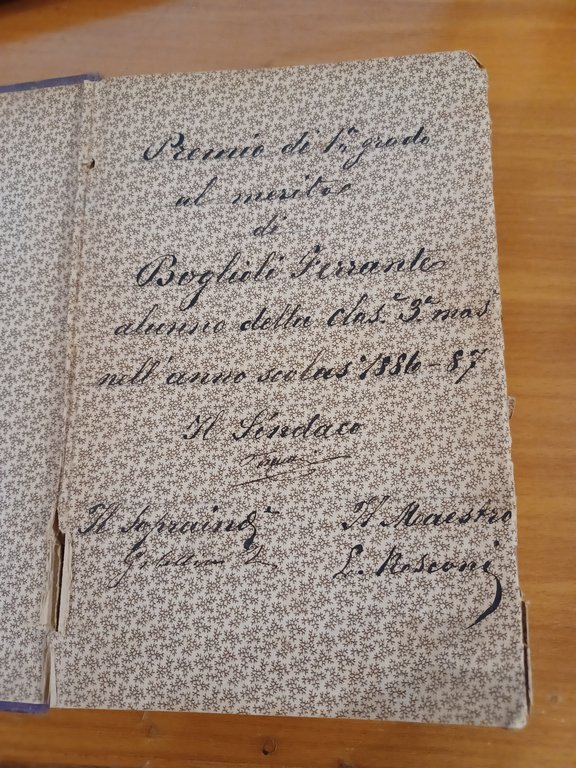 Premio di 1º grado
al merito
di
Boglioli Ferrante
alunno della clas.e 3.a mas.e
nell'anno scolas.o 1886-87
Il Sindaco
Il Sopraind.e Il Maestro
L. Rosconi